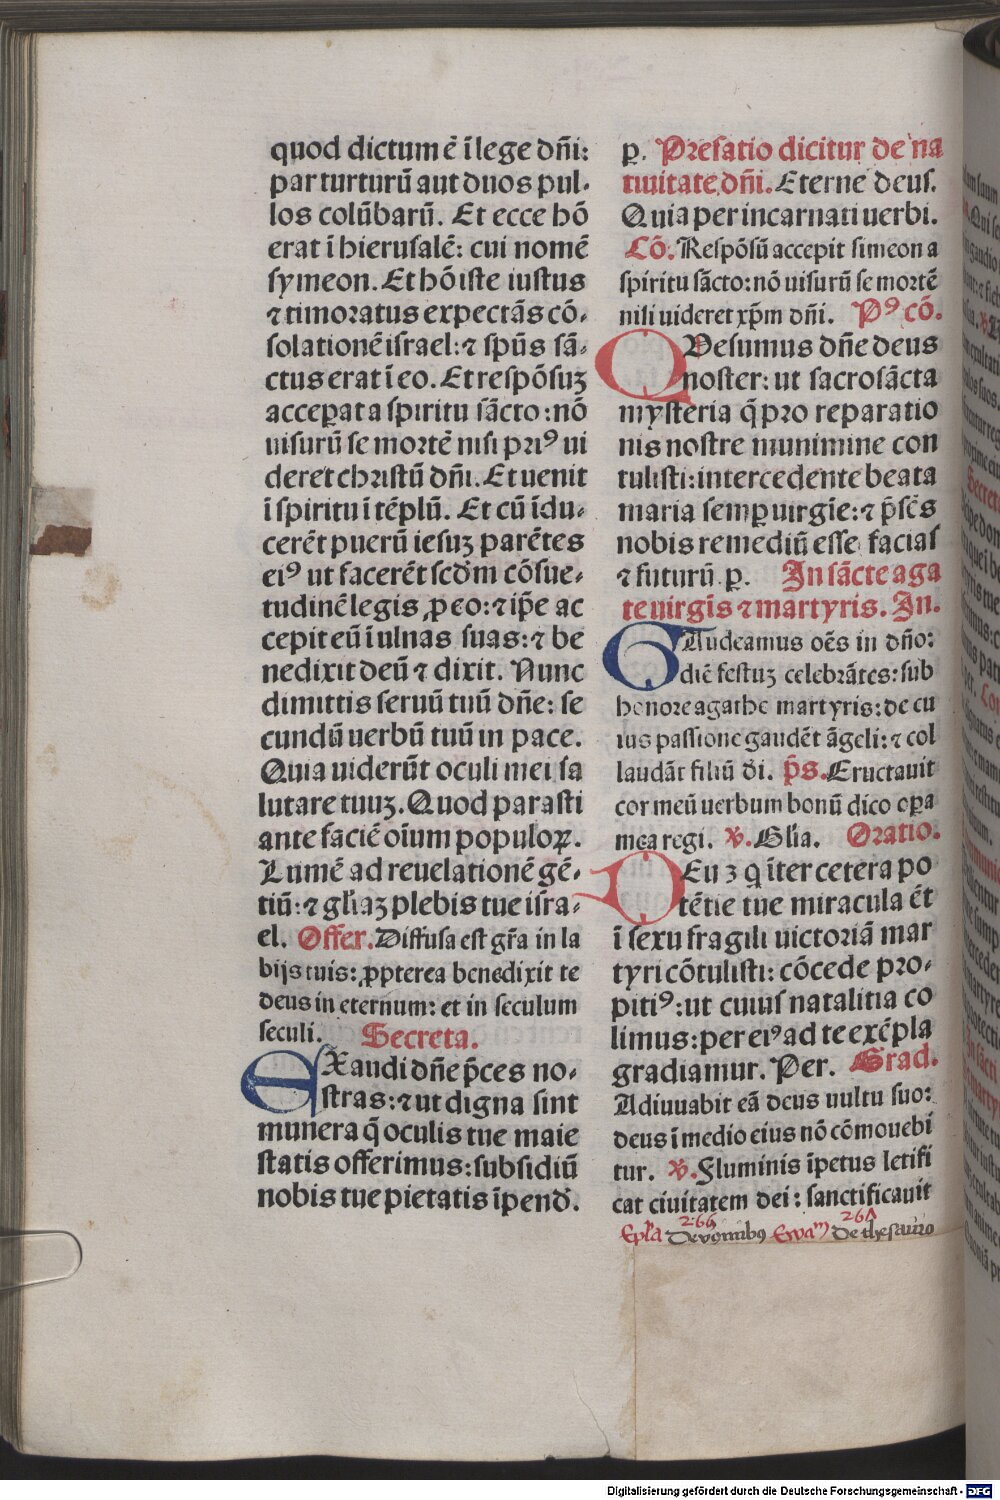 quod dictum ē ī lege dn̄i:
par turturū aut duos pul-
los colūbarū. Et ecce hō
erat ī hierusalē: cui nomē
symeon. Et hō iste iustus
⁊ timoratus expectās cō-
solationē israel: ⁊ spūs sā-
ctus erat ī eo. Et respōsuꝫ
acceꝑat a spiritu sācto: nō
uisurū se mortē nisi priꝰ ui
deret christū dn̄i. Et uenit
ī spiritu ī tēplū. Et cū īdu-
cerēt puerū iesuꝫ parētes
eiꝰ ut facerēt scd̄m cōsue-
tudinē legis ꝓ eo: ⁊ ip̄e ac
cepit eū ī ulnas suas: ⁊ be
nedixit deū ⁊ dixit. Nunc
dimittis seruū tuū dn̄e: se
cundū uerbū tuū in pace.
Quia uiderūt oculi mei sa
lutare tuuꝫ. Quod parasti
ante faciē oīum populoꝝ.
Lumē ad reuelationē gē-
tiū: ⁊ gl̄iaꝫ plebis tue isra-
el. Offer. Diffusa est gr̄a in la
bijs tuis: ꝓpterea benedixit te
deus in eternum: et in seculum
seculi. Secreta.
EXaudi dn̄e p̄ces no-
stras: ⁊ ut digna sint
munera q̄ oculis tue maie
statis offerimus: subsidiū
nobis tue pietatis īpend̄.
ꝑ. Prefatio dicitur de na
tiuitate dn̄i. Eterne deus.
Quia per incarnati uerbi.
Cō. Respōsū accepit simeon a
spiritu sācto: nō uisurū se mortē
nisi uideret xp̄m dn̄i. Pꝰ cō.
QVesumus dn̄e deus
noster: ut sacrosācta
mysteria q̄ pro reparatio
nis nostre munimine con
tulisti: intercedente beata
maria semꝑ uirgīe: ⁊ p̄sēs
nobis remediū esse facias
⁊ futurū. ꝑ. In sācte aga
te uirgīs ⁊ martyris. In.
GAudeamus oēs in dn̄o:
diē festuꝫ celebrātes: sub
honore agathe martyris: de cu
ius passione gaudēt āgeli: ⁊ col
laudāt filiū d̄i. p̄s. Eructauit
cor meū uerbum bonū dico oꝑa
mea regi. ℣. Gl̄ia. Oratio.
DEus q īter cetera po
tētie tue miracula ēt
ī sexu fragili uictoriā mar
tyri cōtulisti: cōcede pro-
pitiꝰ: ut cuius natalitia co
limus: per eiꝰ ad te exēpla
gradiamur. Per. Grad.
Adiuuabit eā deus uultu suo:
deus ī medio eius nō cōmouebi
tur. ℣. Fluminis īpetus letifi
cat ciuitatem dei: sanctificauit
Ep̄la De uginibꝰ Ewāᵐ De thesauro
Digitalisierung gefördert durch die Deutsche Forschungsgemeinschaft - DFG